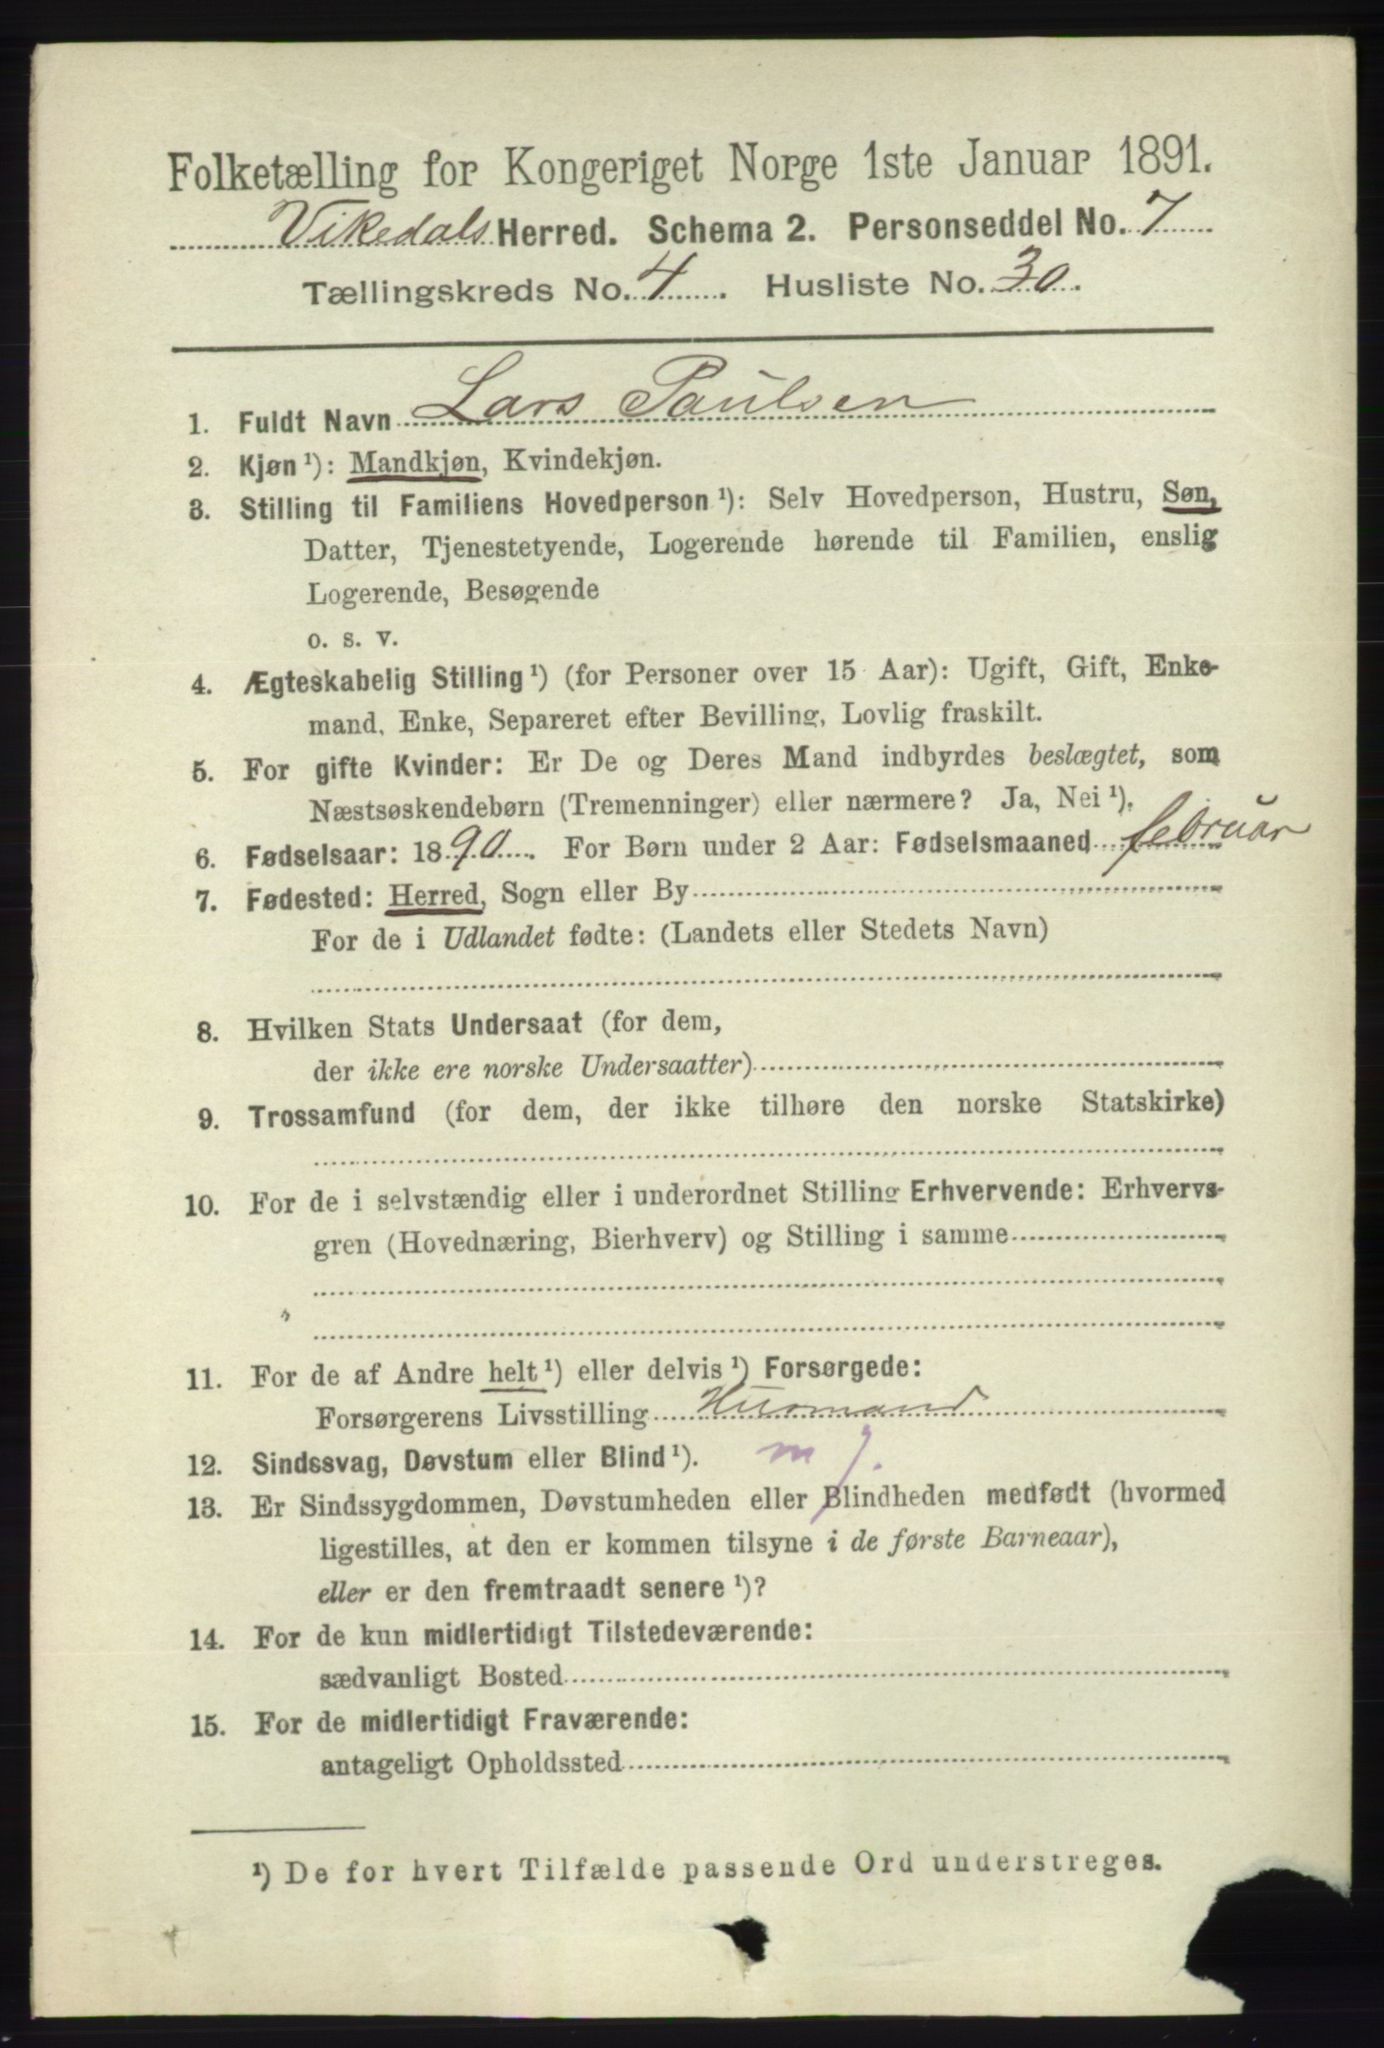 Folketælling for Kongeriget Norge 1ste Januar 1891.
Vikedals Herred. Schema 2. Personseddel No. 7
Tællingskreds No. 4. Husliste No. 30.
1. Fuldt Navn Lars Paulsen
2. Kjøn ¹): Mandkjøn, Kvindekjøn.
3. Stilling til Familiens Hovedperson ¹): Selv Hovedperson, Hustru, Søn,
Datter, Tjenestetyende, Logerende hørende til Familien, enslig
Logerende, Besøgende
o. s. v.
4. Ægteskabelig Stilling ¹) (for Personer over 15 Aar): Ugift, Gift, Enke-
mand, Enke, Separeret efter Bevilling, Lovlig fraskilt.
5. For gifte Kvinder: Er De og Deres Mand indbyrdes beslægtet, som
Næstsøskendebørn (Tremenninger) eller nærmere? Ja, Nei ¹),
6. Fødselsaar: 1890. For Børn under 2 Aar: Fødselsmaaned februar
7. Fødested: Herred, Sogn eller By
For de i Udlandet fødte: (Landets eller Stedets Navn)
8. Hvilken Stats Undersaat (for dem,
der ikke ere norske Undersaatter)
9. Trossamfund (for dem, der ikke tilhøre den norske Statskirke)
10. For de i selvstændig eller i underordnet Stilling Erhvervende: Erhvervs-
gren (Hovednæring, Bierhverv) og Stilling i samme
11. For de af Andre helt ¹) eller delvis ¹) Forsørgede:
Forsørgerens Livsstilling Husmand
12. Sindssvag, Døvstum eller Blind ¹). m
13. Er Sindssygdommen, Døvstumheden eller Blindheden medfødt (hvormed
ligestilles, at den er kommen tilsyne i de første Barneaar),
eller er den fremtraadt senere ¹)?
14. For de kun midlertidigt Tilstedeværende:
sædvanligt Bosted
15. For de midlertidigt Fraværende:
antageligt Opholdssted
¹) De for hvert Tilfælde passende Ord understreges.